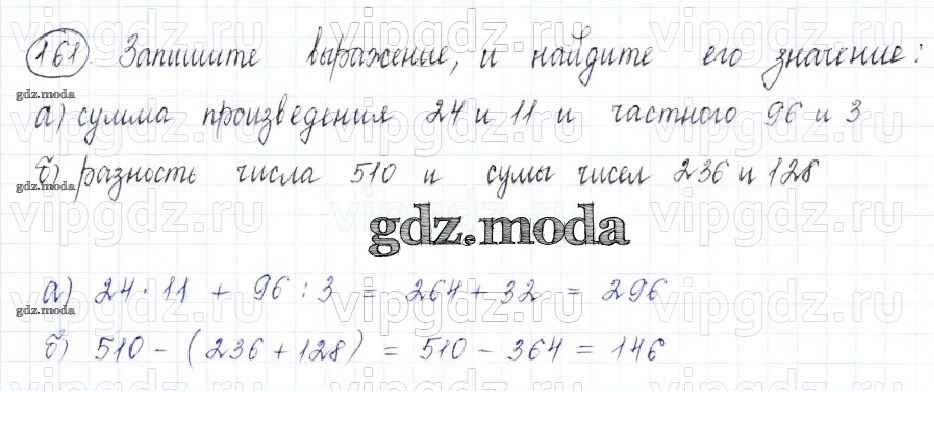 161. Запишите выражение, и найдите его значение:
gdz.moda
а) сумма произведения 24 и 11 и частного 96 и 3
б) разность числа 510 и сумы чисел 236 и 128
gdz.moda
gdz.moda
а) 24 · 11 + 96 : 3 = 264 + 32 = 296
gdz.moda
б) 510 - (236 + 128) = 510 - 364 = 146
gdz.moda